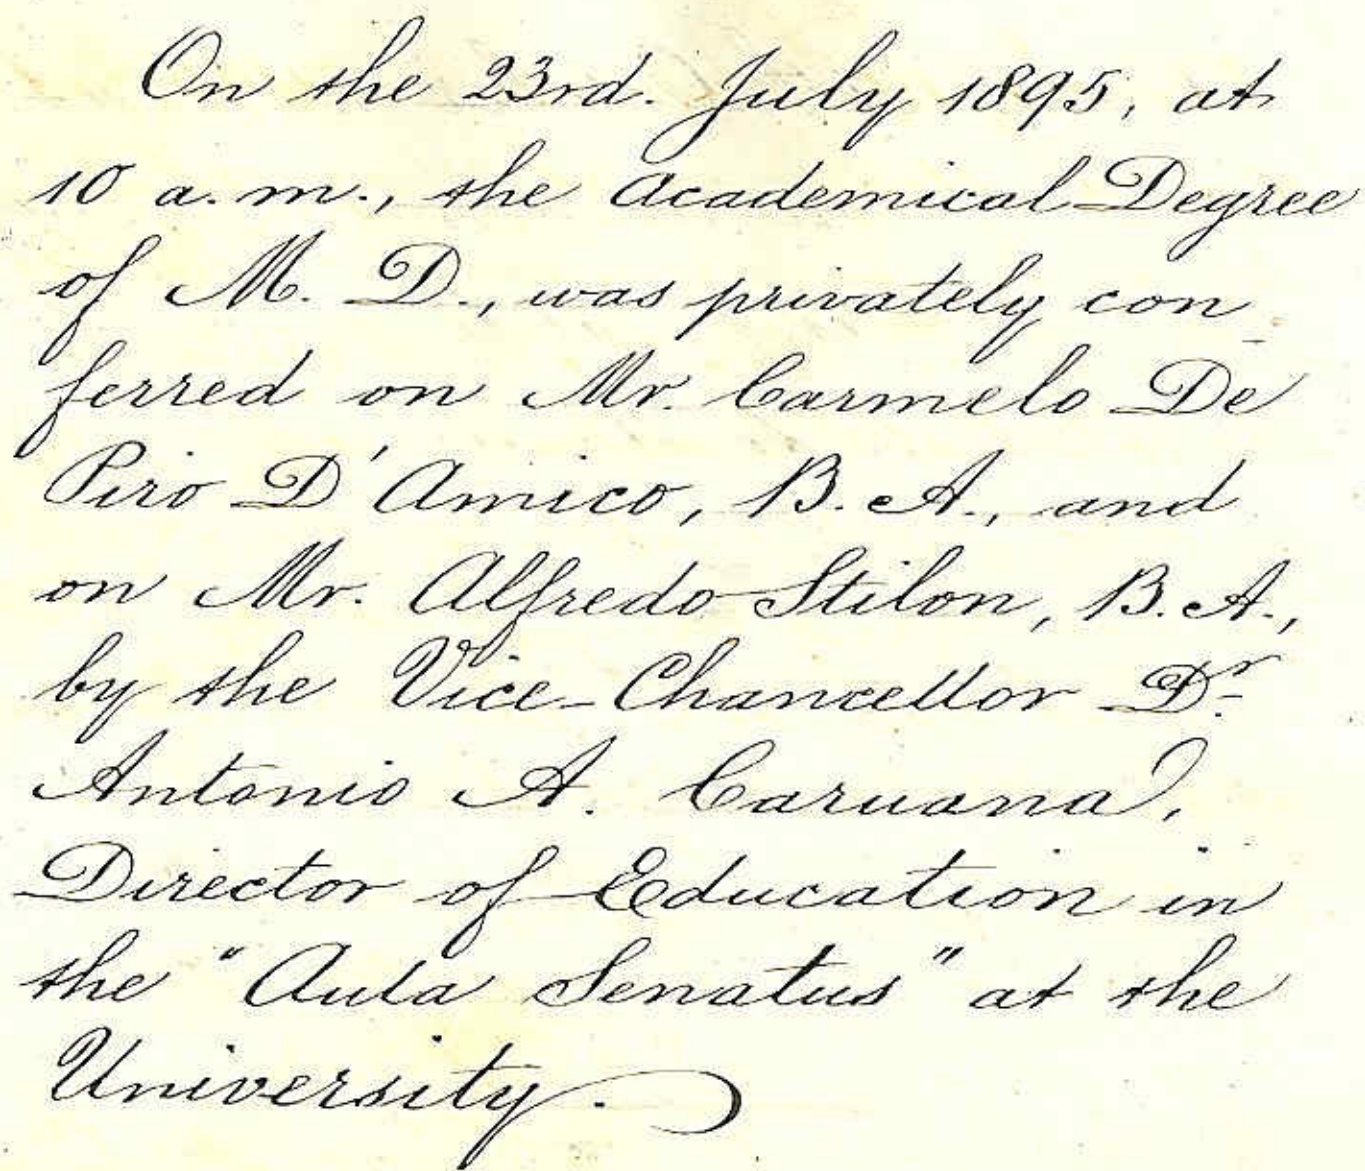 On the 23rd. July 1895, at
10 a.m., the Academical Degree
of M. D., was privately con
ferred on Mr. Carmelo De
Piro D'Amico, B. A., and
on Mr. Alfredo Stilon, B. A.,
by the Vice-Chancellor Dr
Antonio A. Caruana,
Director of Education in
the "Aula Senatus" at the
University.